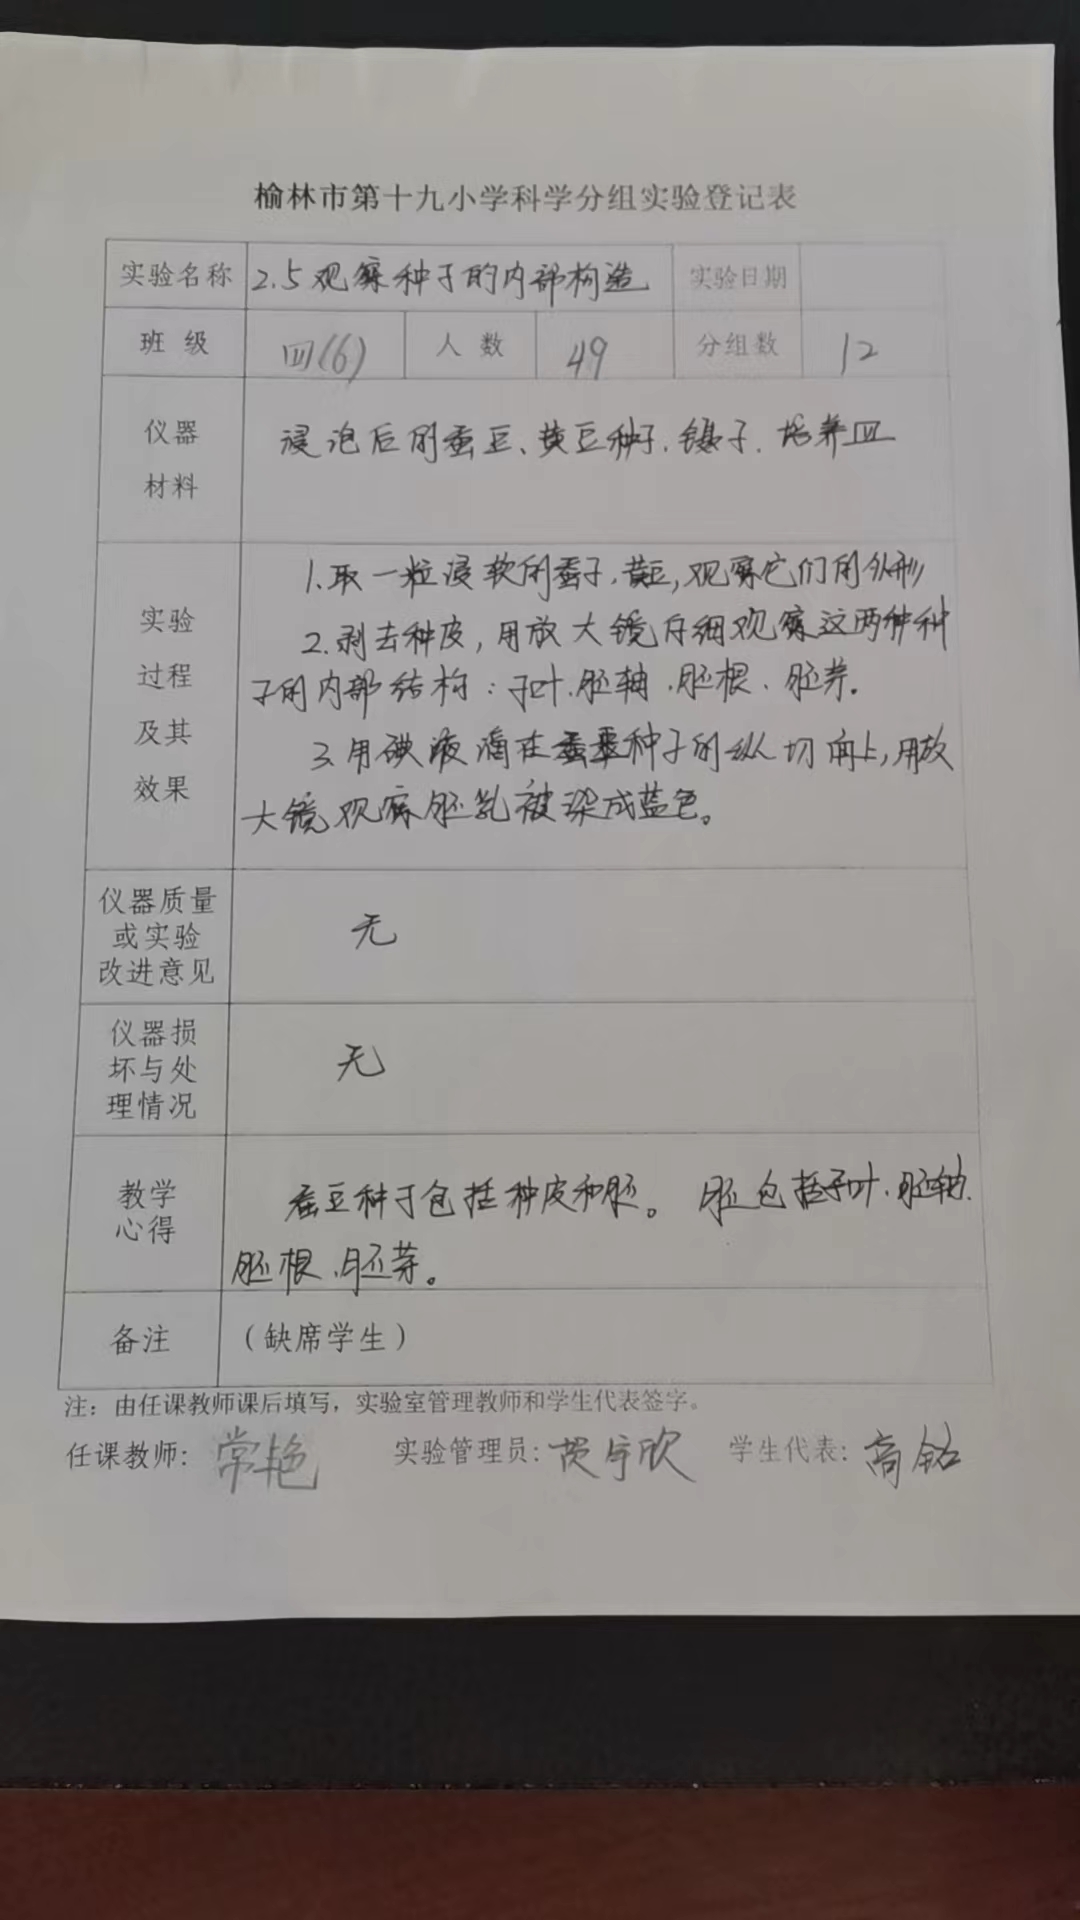 榆林市第十九小学科学分组实验登记表
实验名称 2.5观察种子的内部构造 实验日期
班级 四(6) 人数 49 分组数 12
仪器 浸泡后的蚕豆、黄豆种子、镊子、培养皿
材料
1.取一粒浸软的蚕子、黄豆,观察它们的外形
实验 2.剥去种皮,用放大镜仔细观察这两种种
过程 子的内部结构:子叶、胚轴、胚根、胚芽。
及其 3.用碘液滴在种子的纵切面上,用放
效果 大镜观察胚乳被染成蓝色。
仪器质量
或实验 无
改进意见
仪器损
坏与处 无
理情况
教学 蚕豆种子包括种皮和胚。 胚包括子叶、胚轴、
心得 胚根、胚芽。
备注 (缺席学生)
注:由任课教师课后填写,实验室管理教师和学生代表签字。
任课教师: 常艳 实验管理员: 宇欣 学生代表: 高铭